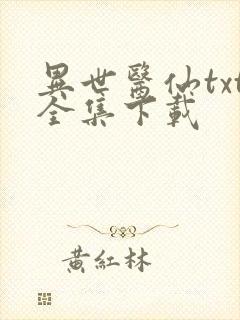 異世醫仙txt
全集下載
黃紅林